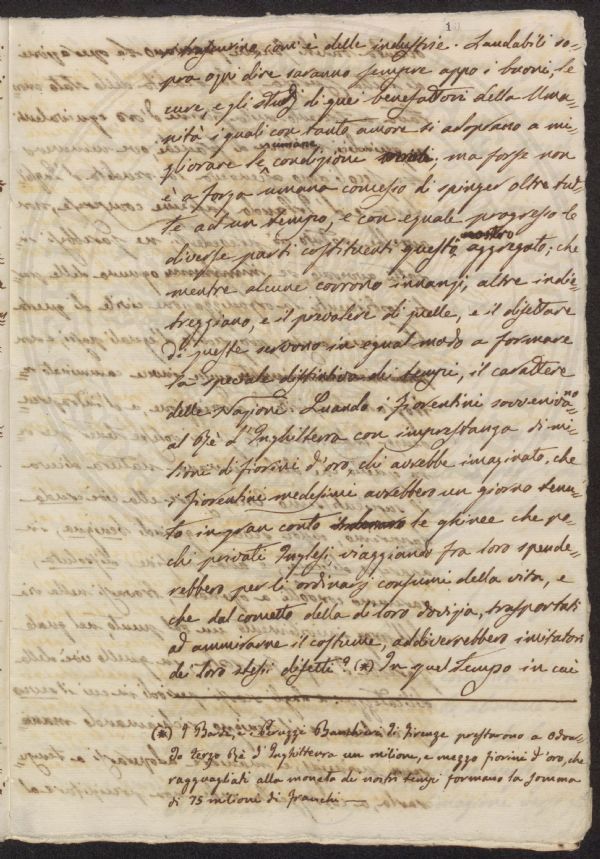 com'è delle industrie. Laudabili so-
pra ogni dire saranno sempre appo i buoni, le
cure, e gli studj di quei benefattori della Uma-
nità i quali con tanto amore si adoprano a mi-
gliorare le condizione umane, ma forse non
è a forza umana concesso di spinger oltre tut-
te ad un tempo, e con eguale progresso le
diverse parti costituenti questo nostro aggregato; che
mentre alcune corrono innanzi, altre indie-
treggiano, e il prevalere di quelle, e il difettare
di queste servono in egual modo a formare
la speciale distintiva dei tempi, il carattere
delle Nazioni. Quando i Fiorentini sovvenivano
al Rè d'Inghilterra con imprestanza di mi-
lione di fiorini d'oro, chi avrebbe imaginato, che
i Fiorentini medesimi avrebbero un giorno tenu-
to in gran conto le ghinee che po-
chi privati Inglesi viaggiando fra loro spende-
rebbero per li ordinarj consumi della vita, e
che dal cometto della di loro dovizia, trasportati
ad ammirarne il costume, addiverrebbero imitatori
dei loro stessi difetti? (*) In quel tempo in cui
(*) I Bardi, e i Peruzzi Banchieri di Firenze prestarono a Odoar-
do Terzo Rè d'Inghilterra un milione, e mezzo fiorini d'oro, che
ragguagliati alla moneta dei nostri tempi formano la somma
di 75 milioni di franchi